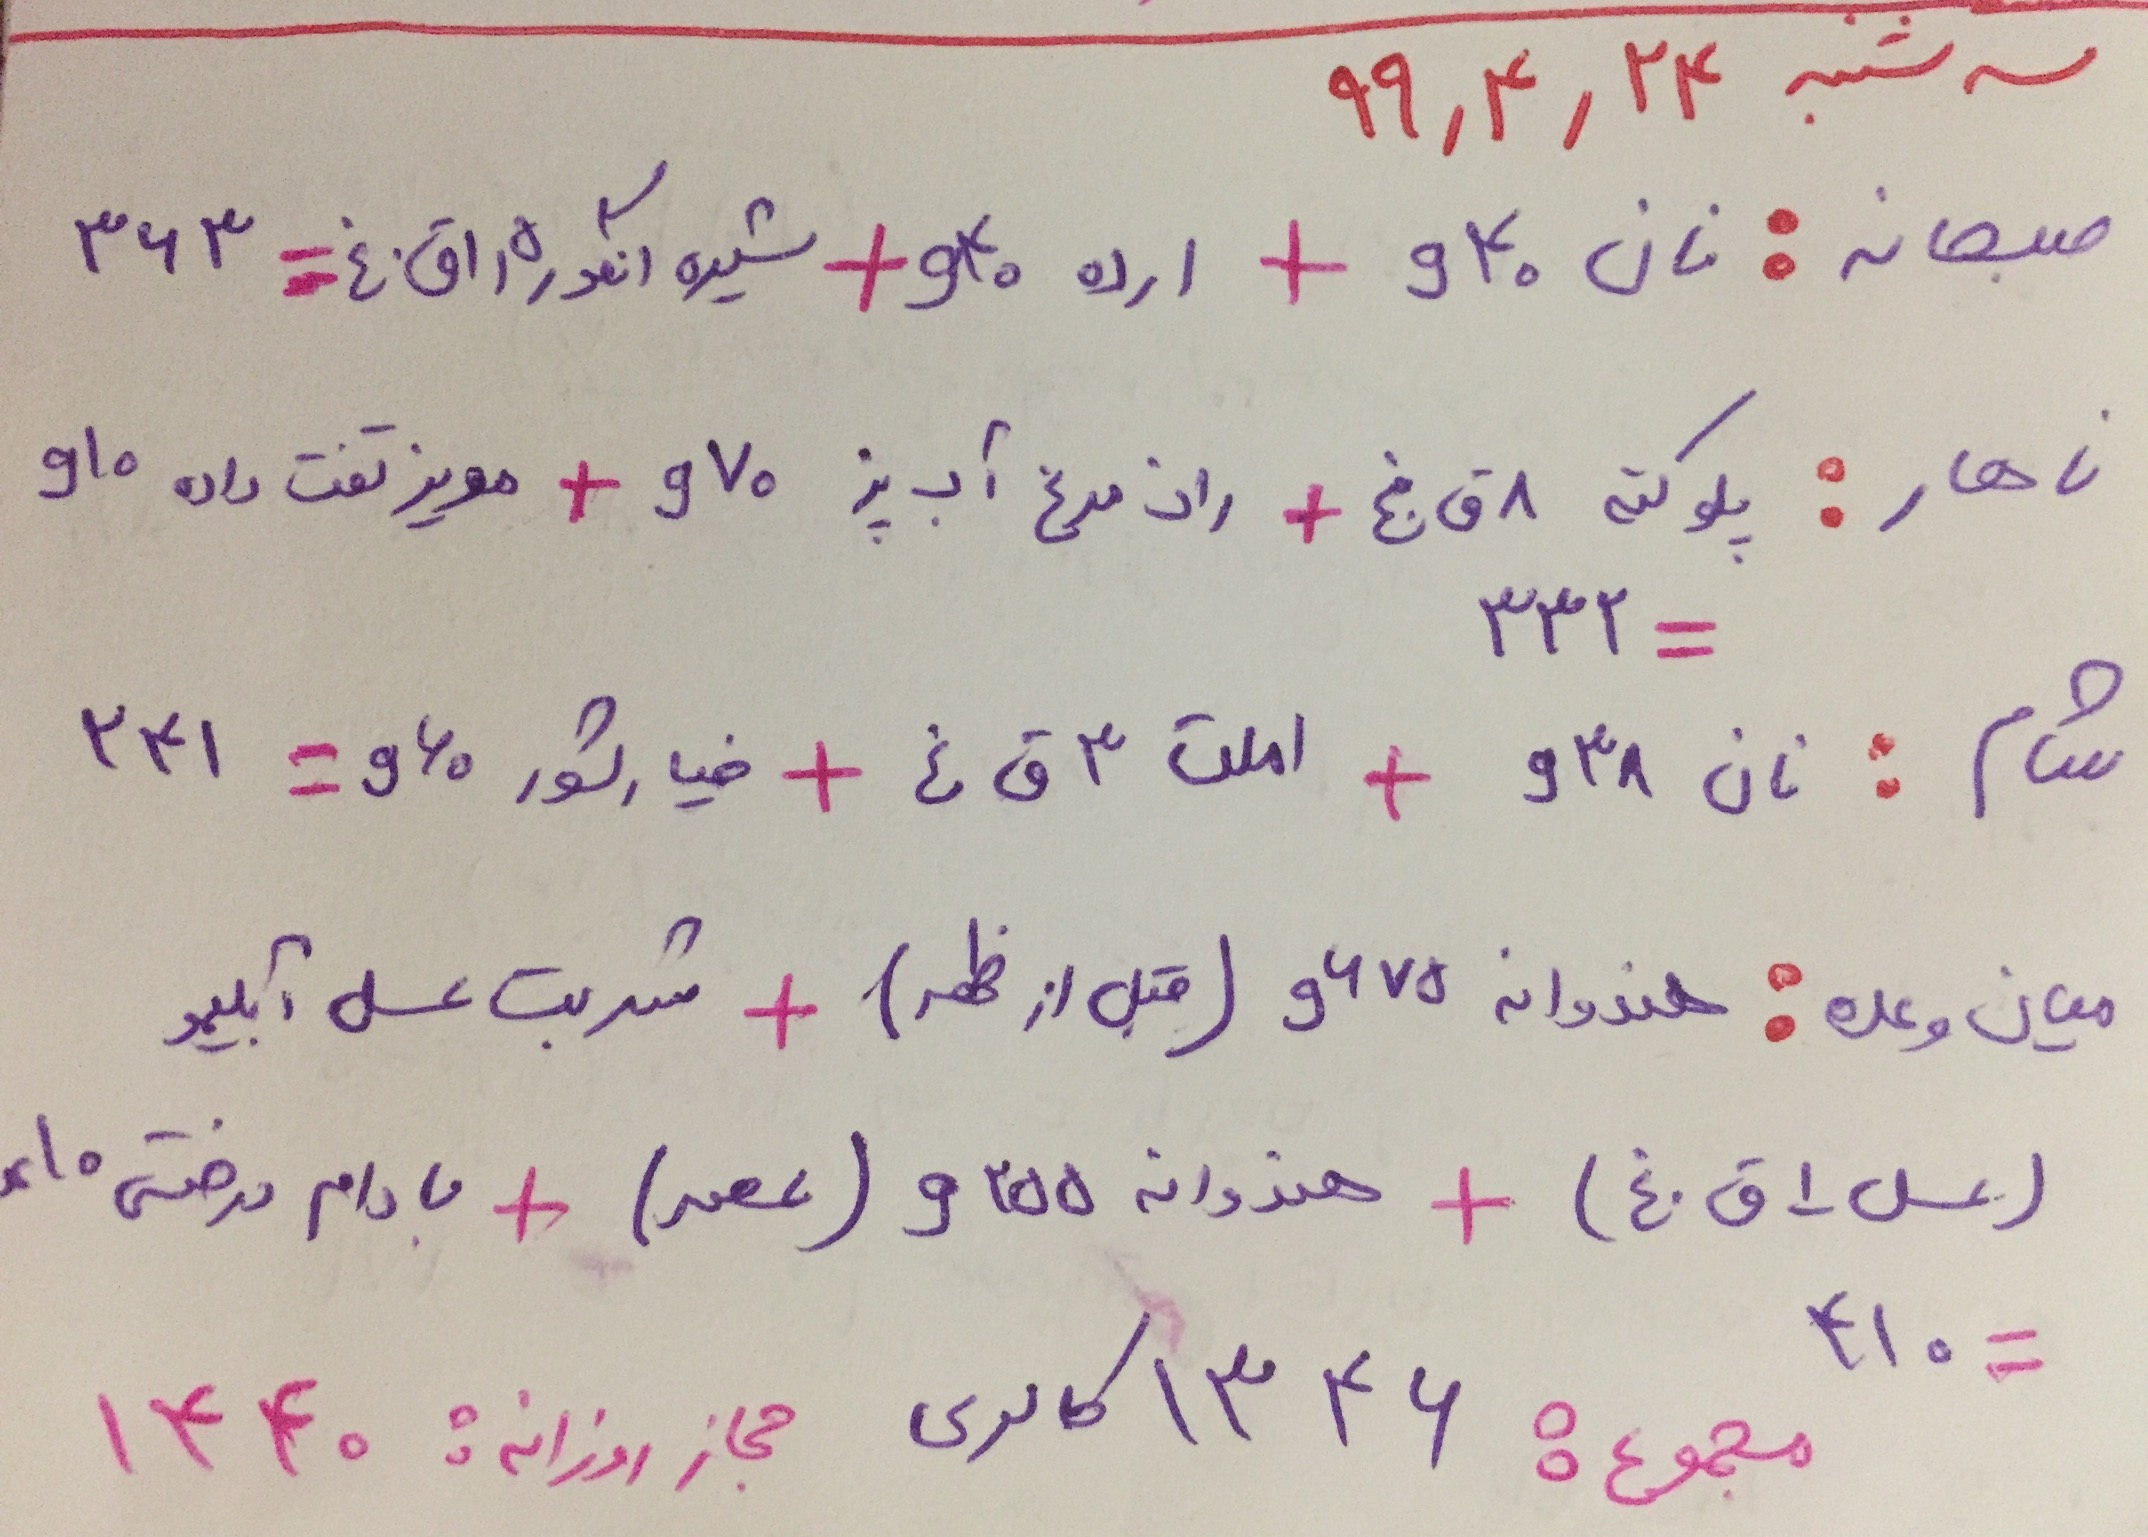 سه شنبه ۹۹,۴,۲۴
صبحانه : نان ۴۰g + ارده ۴۰g + شیره انگور ۱٫۵ ق.غ = ۳۶۳
ناهار : پلو کته ۸ ق.غ + ران مرغ آب پز ۷۰g + مویز تفت داده ۱۰g
= ۳۳۲
شام : نان ۳۸g + املت ۳ ق غ + خیارشور ۶۰g = ۲۴۱
میان وعده : هندوانه ۶۷۵g (قبل از ظهر) + شربت عسل آبلیمو
(عسل ۱ ق.غ) + هندوانه ۲۵۵g (عصر) + بادام درختی ۱۰
= ۴۱۰
مجموع : ۱۳۴۶ کالری مجاز روزانه : ۱۴۴۰